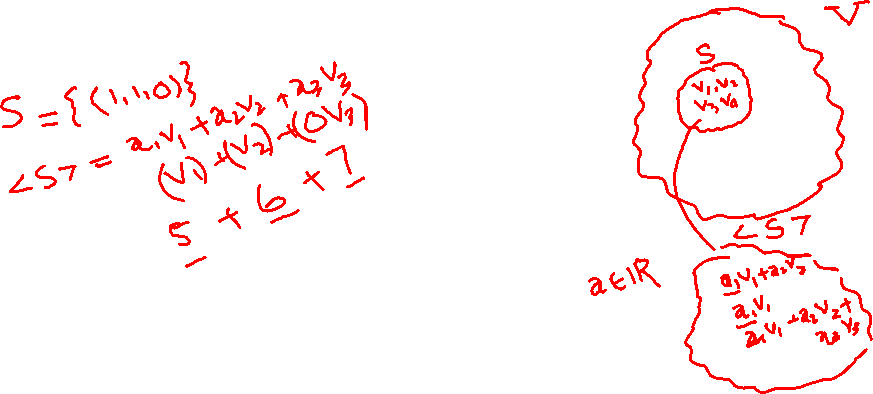 S = {(1,1,0)}
<S> = a₁v₁ + a₂v₂ + a₃v₃
(v₁) + (v₂) + (0v₃)
5 + 6 + 7
V
S
v₁, v₂
v₃, v₄
<S>
a∈ℝ
a₁v₁ + a₂v₃
a₁v₁
a₁v₁ + a₂v₂ +
a₃v₃